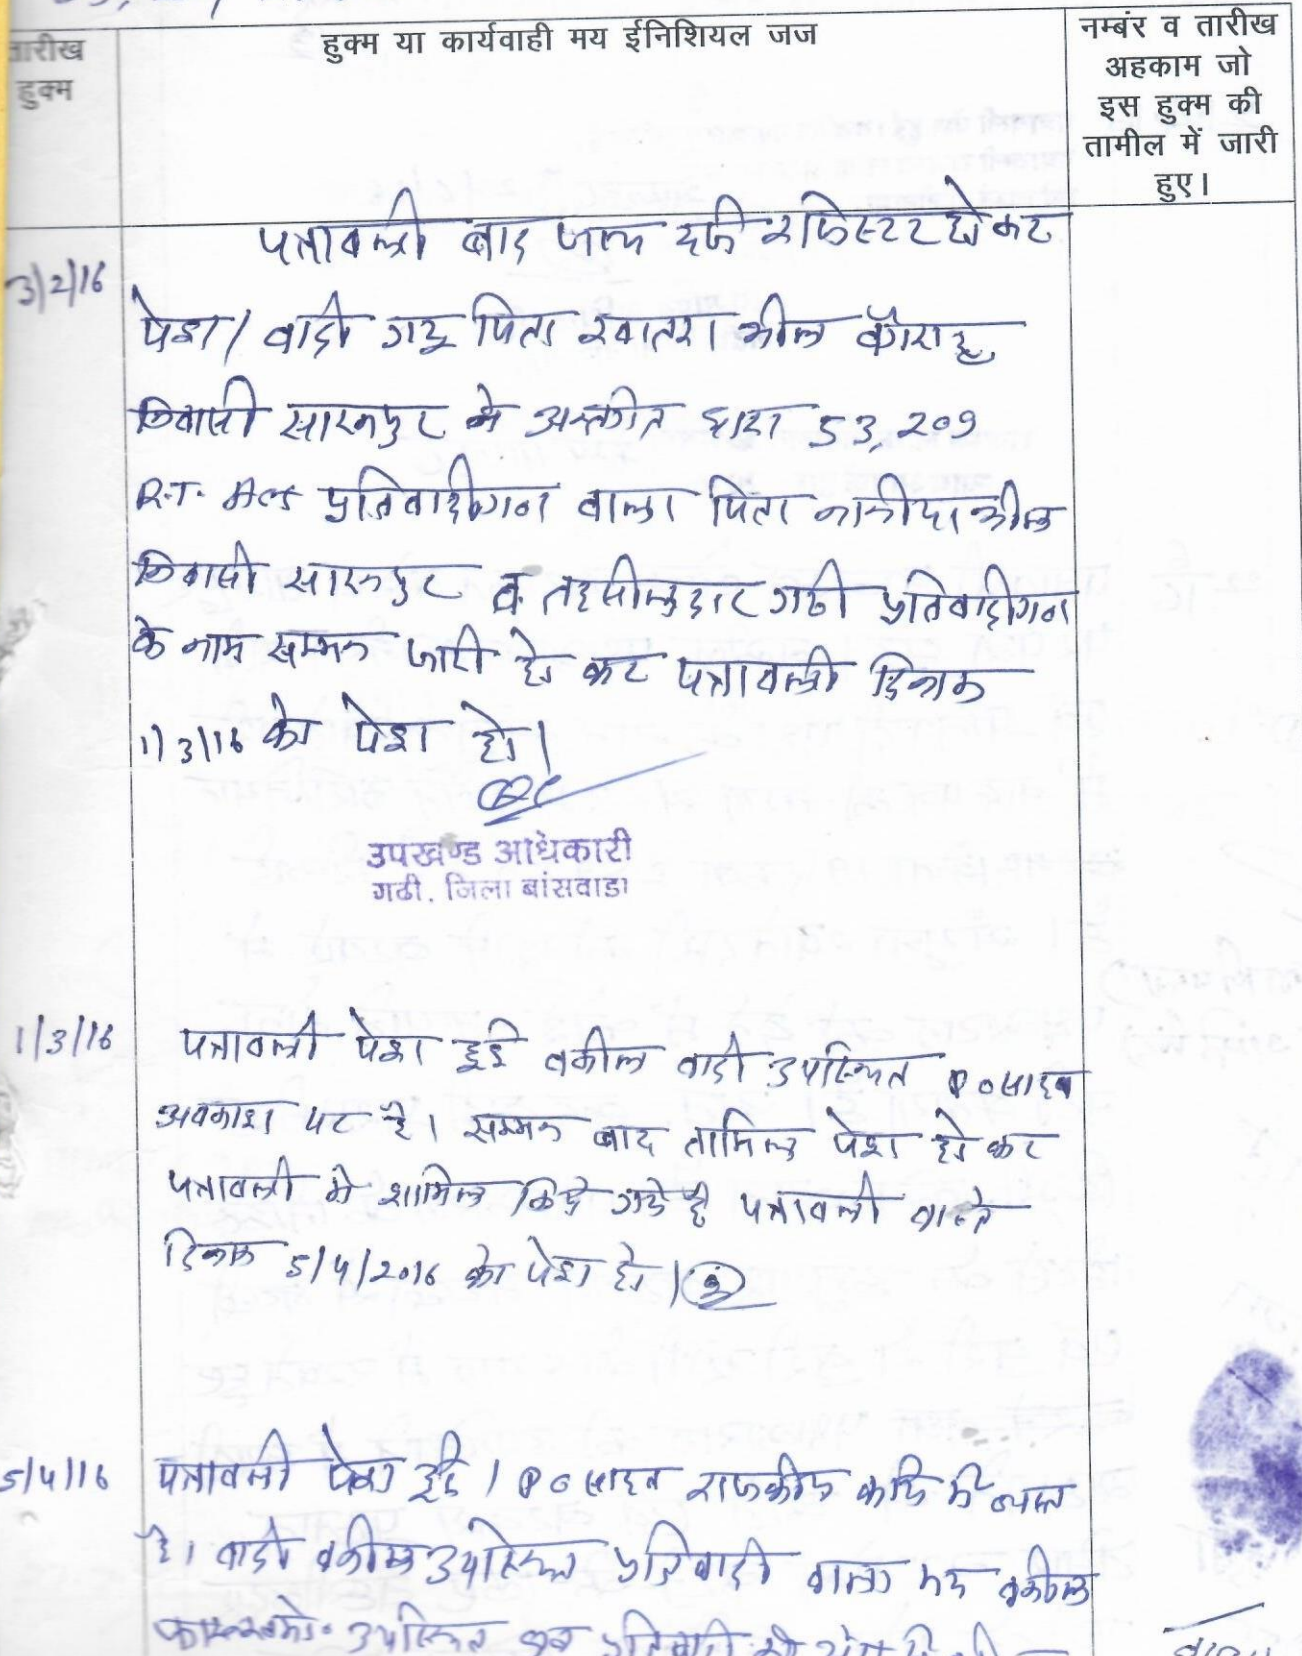 तारीख
हुक्म
हुक्म या कार्यवाही मय ईनिशियल जज
नम्बंर व तारीख
अहकाम जो
इस हुक्म की
तामील में जारी
हुए।
3/2/16
पत्रावली बाद जाच दर्ज रजिस्टर होकर
पेश। वादी गटू पिता खातरा भील
निवासी सारनपुर ने अन्तर्गत धारा 53, 209
R.T. Act प्रतिवादीगण वाला पिता भील
निवासी सारनपुर व तहसीलदार गढी प्रतिवादीगण
के नाम सम्मन जारी हो कर पत्रावली दिनांक
1/3/16 को पेश हो।
उपखण्ड अधिकारी
गढी. जिला बांसवाडा
1/3/16
पत्रावली पेश हुई वकील वादी उपस्थित P O साहब
अवकाश पर है। सम्मन बाद तामिल पेश हो कर
पत्रावली मे शामिल किये गये है पत्रावली वास्ते
दिनांक 5/4/2016 को पेश हो।
5/4/16
पत्रावली पेश हुई। P O साहब राजकीय कार्य मे व्यस्त
है। वादी वकील उपस्थित प्रतिवादी वाला मय वकील
उपस्थित